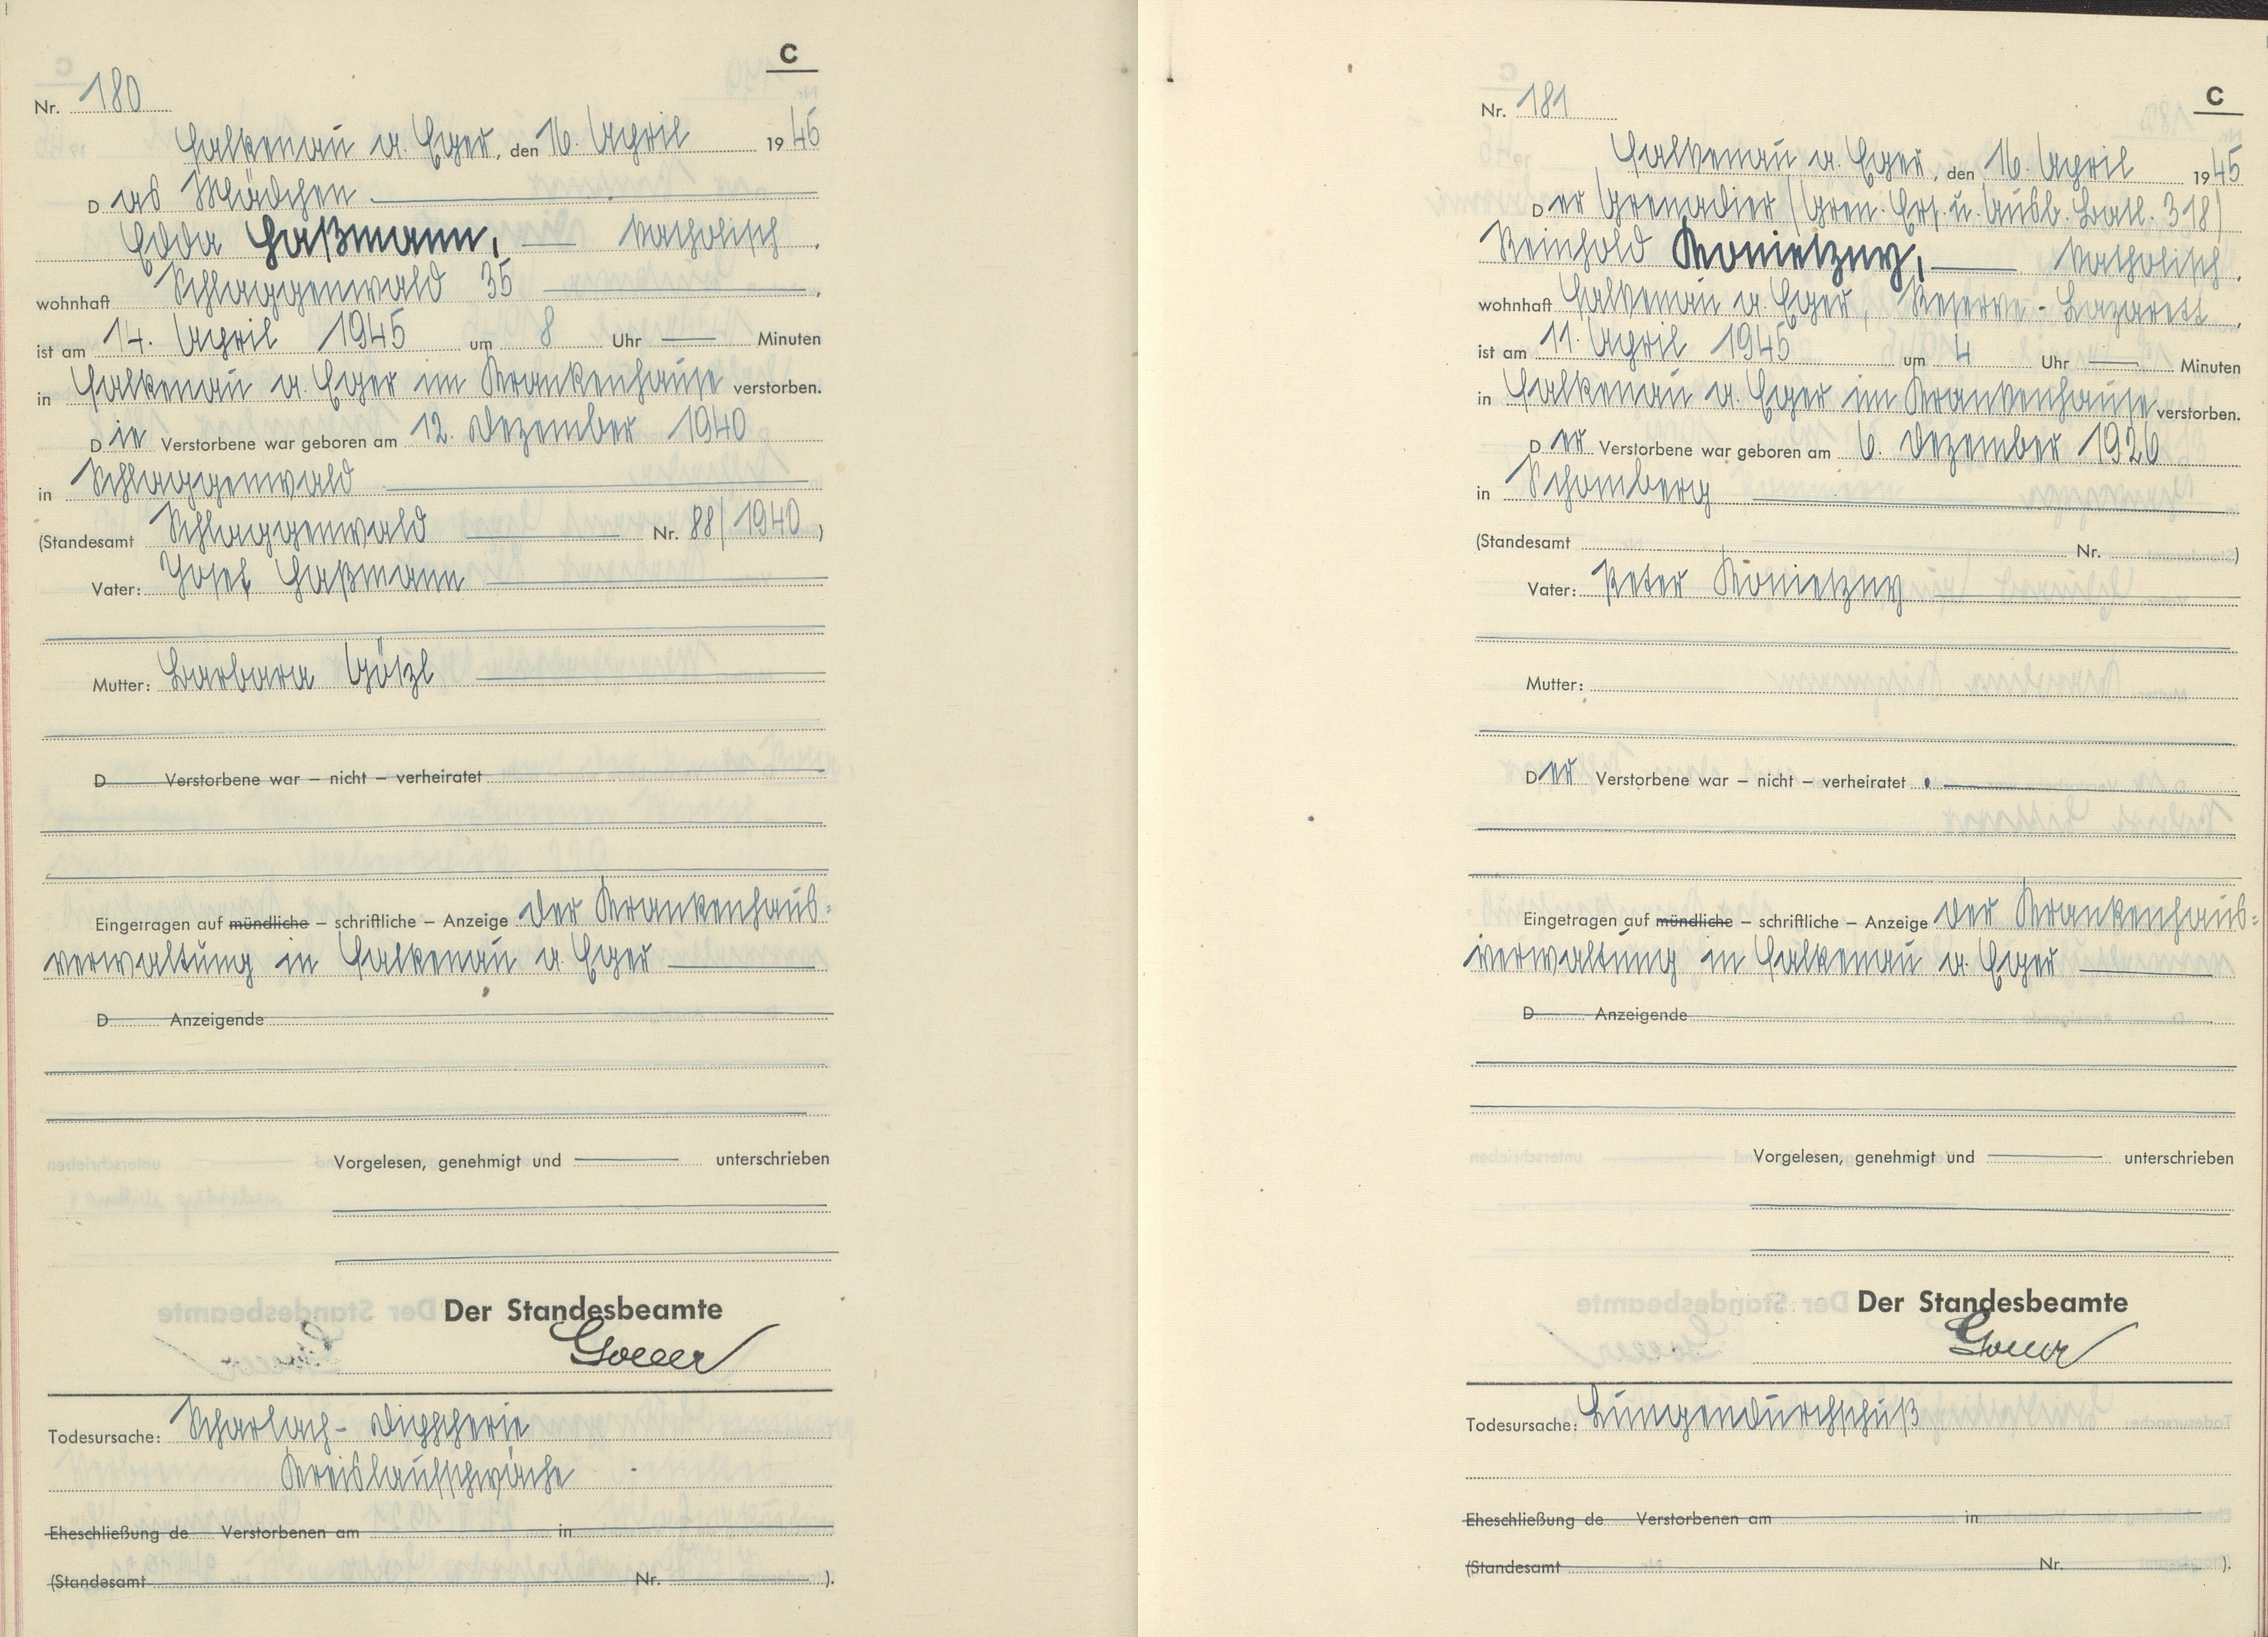 C
Nr. 180
Falkenau a. Eger, den 16. April 1945
Das Mädchen
Edda Haßmann, katholisch,
wohnhaft Schlaggenwald 35,
ist am 14. April 1945 um 8 Uhr — Minuten
in Falkenau a. Eger im Krankenhause verstorben.
Die Verstorbene war geboren am 12. Dezember 1940
in Schlaggenwald
(Standesamt Schlaggenwald Nr. 88/1940)
Vater: Josef Haßmann
Mutter: Barbara Götzl
D Verstorbene war – nicht – verheiratet
Eingetragen auf mündliche – schriftliche – Anzeige der Krankenhaus-
verwaltung in Falkenau a. Eger
D Anzeigende
Vorgelesen, genehmigt und — unterschrieben
Der Standesbeamte
Todesursache: Scharlach- Diphterie
Kreislaufschwäche
Eheschließung de Verstorbenen am in
(Standesamt Nr. ).
C
Nr. 181
Falkenau a. Eger, den 16. April 1945
Der Grenadier (Gren. Ers. u. Ausb. Batl. 318)
Reinhold Konietzny, katholisch,
wohnhaft Falkenau a. Eger, Reserve-Lazarett,
ist am 11. April 1945 um 4 Uhr — Minuten
in Falkenau a. Eger im Krankenhause verstorben.
Der Verstorbene war geboren am 6. Dezember 1926
in Schomberg
(Standesamt Nr. )
Vater: Peter Konietzny
Mutter:
Der Verstorbene war – nicht – verheiratet.
Eingetragen auf mündliche – schriftliche – Anzeige der Krankenhaus-
verwaltung in Falkenau a. Eger
D Anzeigende
Vorgelesen, genehmigt und — unterschrieben
Der Standesbeamte
Todesursache: Lungendurchschuß
Eheschließung de Verstorbenen am in
(Standesamt Nr. ).